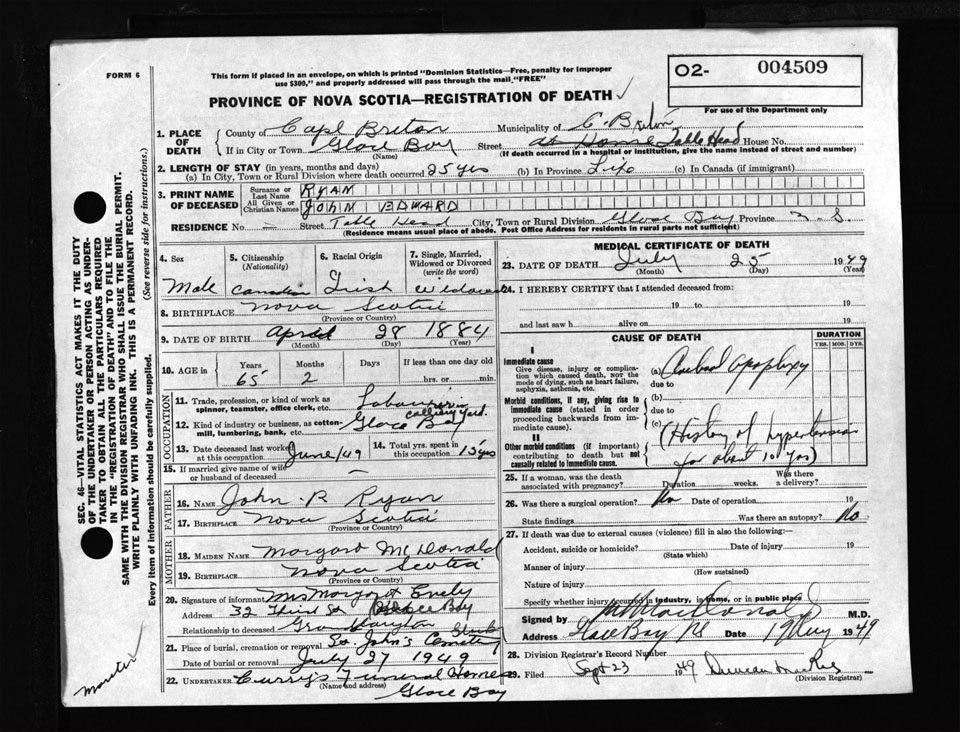 FORM 6
This form if placed in an envelope, on which is printed "Dominion Statistics—Free, penalty for improper
use $300," and properly addressed will pass through the mail "FREE"
PROVINCE OF NOVA SCOTIA—REGISTRATION OF DEATH
O2- 004509
For use of the Department only
1. PLACE OF DEATH
County of Cape Breton Municipality of C. Breton
If in City or Town Glace Bay Street at Home Table Head House No.
(Name) (If death occurred in a hospital or institution, give the name instead of street and number)
2. LENGTH OF STAY (in years, months and days)
(a) In City, Town or Rural Division where death occurred 25 yrs (b) In Province Life (c) In Canada (if immigrant)
3. PRINT NAME OF DECEASED
Surname or Last Name RYAN
All Given or Christian Names JOHN EDWARD
RESIDENCE No. — Street Table Head City, Town or Rural Division Glace Bay Province N.S.
(Residence means usual place of abode. Post Office Address for residents in rural parts not sufficient)
4. Sex
Male
5. Citizenship
(Nationality)
Canadian
6. Racial Origin
Irish
7. Single, Married,
Widowed or Divorced
(write the word)
Widowed
8. BIRTHPLACE Nova Scotia
(Province or Country)
9. DATE OF BIRTH April 28 1884
(Month) (Day) (Year)
10. AGE in Years Months Days If less than one day old
65 2 hrs. or min.
OCCUPATION
11. Trade, profession, or kind of work as
spinner, teamster, office clerk, etc. Labourer in
colliery yard.
12. Kind of industry or business, as cotton-
mill, lumbering, bank, etc. Glace Bay
13. Date deceased last worked
at this occupation June/49
14. Total yrs. spent in
this occupation 15 yrs
15. If married give name of wife
or husband of deceased —
FATHER
16. NAME John P. Ryan
17. BIRTHPLACE Nova Scotia
(Province or Country)
MOTHER
18. MAIDEN NAME Margaret McDonald
19. BIRTHPLACE Nova Scotia
(Province or Country)
20. Signature of informant Mrs Margaret
Address 32 Third St Glace Bay
Relationship to deceased
21. Place of burial, cremation or removal St. John's Cemetery
Date of burial or removal July 27 1949
22. UNDERTAKER Curry's Funeral Home
(Name and address) Glace Bay
MEDICAL CERTIFICATE OF DEATH
23. DATE OF DEATH July 25 1949
(Month) (Day) (Year)
24. I HEREBY CERTIFY that I attended deceased from:
19 to 19
and last saw h alive on 19
CAUSE OF DEATH
DURATION
YRS. MOS. DYS.
I
Immediate cause
Give disease, injury or complica-
tion which caused death, NOT the
mode of dying, such as heart failure,
asphyxia, asthenia, etc.
(a) Cerebral apoplexy
due to
Morbid conditions, if any, giving rise to
immediate cause (stated in order
proceeding backwards from im-
mediate cause).
(b)
due to
(c)
II
Other morbid conditions (if important)
contributing to death but not
causally related to immediate cause.
(History of hypertension
for about 10 yrs)
25. If a woman, was the death Was there
associated with pregnancy? Duration weeks. a delivery?
26. Was there a surgical operation? No Date of operation 19
State findings Was there an autopsy? No
27. If death was due to external causes (violence) fill in also the following:—
Accident, suicide or homicide? Date of injury 19
(State which)
Manner of injury
(How sustained)
Nature of injury
Specify whether injury occurred in industry, in home, or in public place
Signed by M.D.
Address Glace Bay NS Date 1949
28. Division Registrar's Record Number
29. Filed Sept 23 1949 Duncan
(Division Registrar)
SEC. 46—VITAL STATISTICS ACT MAKES IT THE DUTY
OF THE UNDERTAKER OR PERSON ACTING AS UNDER-
TAKER TO OBTAIN ALL THE PARTICULARS REQUIRED
IN THE "REGISTRATION OF DEATH" AND TO FILE THE
SAME WITH THE DIVISION REGISTRAR WHO SHALL ISSUE THE BURIAL PERMIT.
WRITE PLAINLY WITH UNFADING INK. THIS IS A PERMANENT RECORD.
Every item of information should be carefully supplied. (See reverse side for instructions.)